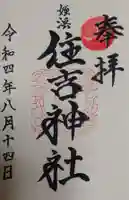 奉拝
住吉神社
令和四年八月十四日